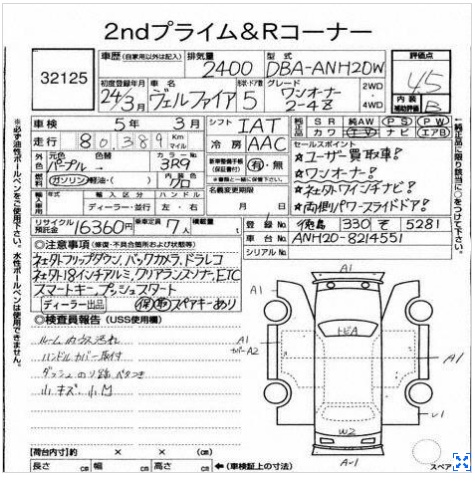 2ndプライム＆Rコーナー
32125
車歴 (自家用以外は記入) 排気量 2400 型式 DBA-ANH20W
評価点 4.5
初度登録年月 24/3月 車名 ヴェルファイア 形状・ドア数 5 グレード ワンオーナー 2-4Z 2WD 4WD
内装補助評価 B
車検 5年 3月 シフト IAT
純正品 SR 純AW PS PW
カワ TV ナビ エアB
走行 80,389 Km マイル 冷房 AAC
セールスポイント
☆ユーザー買取車!
☆ワンオーナー!
☆ネェクト9インチナビ!
☆両側パワースライドドア!
外色 元色 パープル→ 色替 カラーNo. 3R9
新車整備手帳(保証書付) 有・無
燃料 ガソリン・軽油・( ) 内装色 クロ
名義変更期限 月 日
輸入車用 年式 輸入区分 ハンドル
年 ディーラー・並行 左・右
リサイクル預託金 16360円 乗車定員 7人 積載量 t
登録No. 徳島 330 そ 5281
車台No. ANH20-8214551
シリアルNo.
◎注意事項 (修復・不具合箇所および状態等)
ネェクトフリップダウン、バックカメラ、ドラレコ
ネェクト18インチアルミ、クリアランスソナー、ETC
スマートキー、プッシュスタート
ディーラー出品 保 取 スペアキーあり
◎検査員報告 (USS使用欄)
ルーム カウス汚れ
ハンドルカバー取付
ダッシュ のり跡 ベタつき
小キズ、小凹
A1
A1
A1
カバーA2
トビA
A1
A1
U1
W2
A-1
スペア
【荷台内寸】約 × × (cm)
長さ cm 幅 cm 高さ cm ←(車検証上の寸法)
※必ず油性ボールペンをご使用下さい。水性ボールペンは使用できません。
(純正品に限り該当に○をつけて下さい)